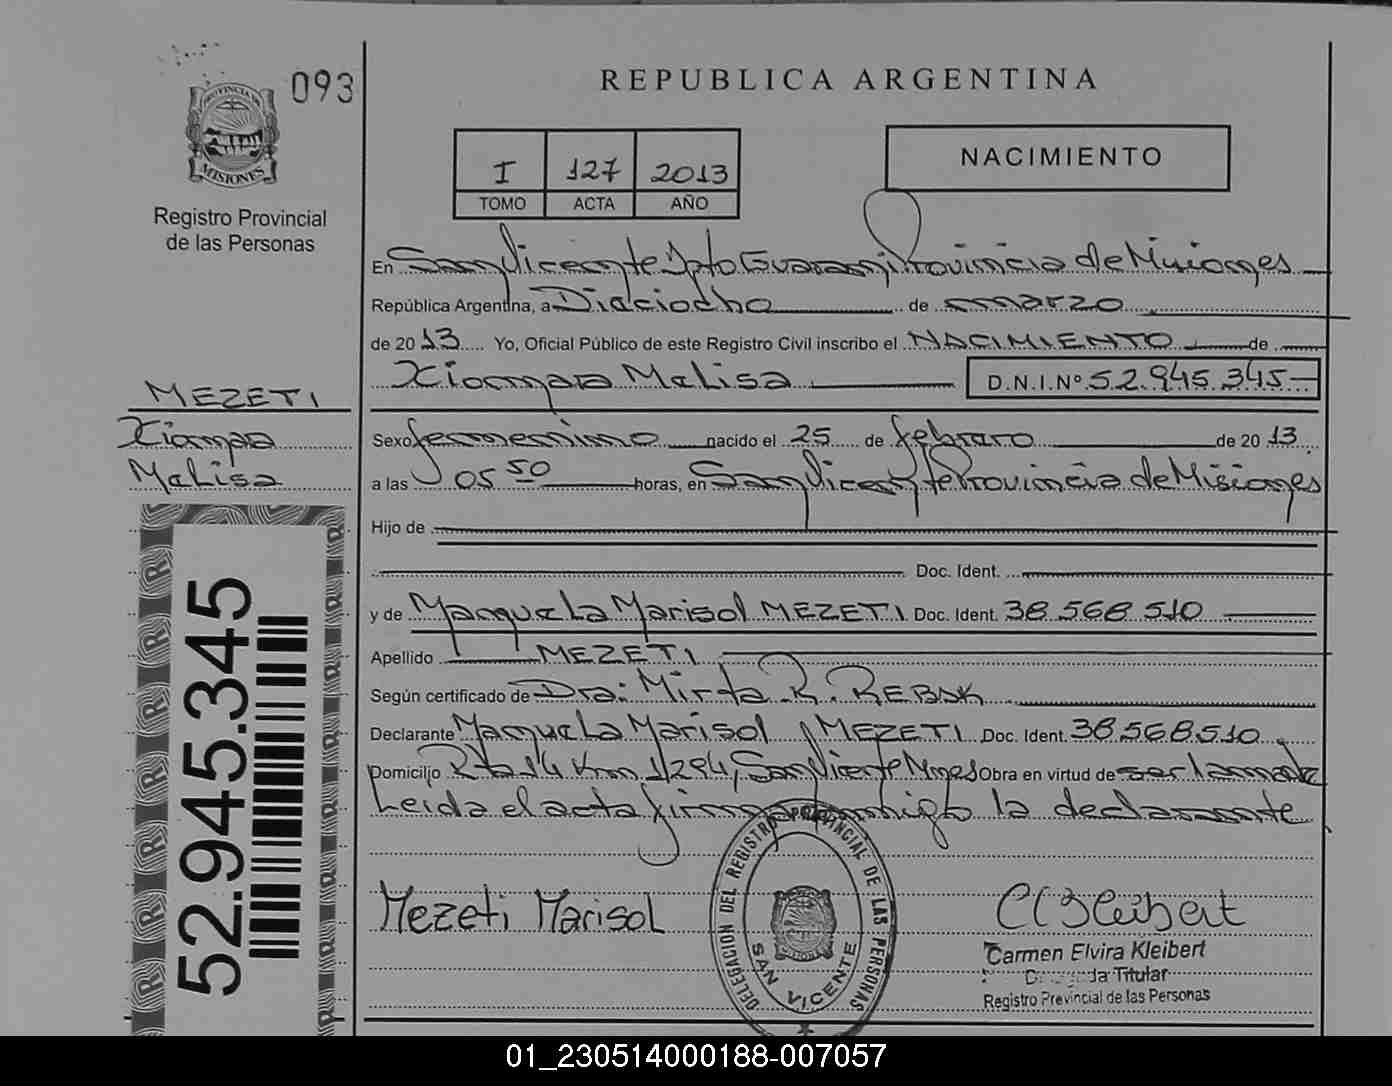 093
REPUBLICA ARGENTINA
PROVINCIA DE
MISIONES
Registro Provincial
de las Personas
I 127 2013
TOMO ACTA AÑO
NACIMIENTO
En San Vicente Dpto Guarani Provincia de Misiones
República Argentina, a Dieciocho de marzo
de 2013 Yo, Oficial Público de este Registro Civil inscribo el NACIMIENTO de
Xiomara Melisa D.N.I.Nº 52.945.345
MEZETI
Xiomara
Melisa
Sexo femenino nacido el 25 de febrero de 2013
a las 05 50 horas, en San Vicente Provincia de Misiones
Hijo de
Doc. Ident.
y de Marisol MEZETI Doc. Ident. 38.568.510
Apellido MEZETI
Según certificado de Dra: Mirta R. REBAK
Declarante Marisol MEZETI Doc. Ident. 38.568.510
Domicilio Rta 14 Km 1294, San Vicente Mnes Obra en virtud de ser la madre
Leida el acta firma conmigo la declarante
52.945.345
Mezeti Marisol
DELEGACION DEL REGISTRO PROVINCIAL DE LAS PERSONAS
SAN VICENTE
Carmen Elvira Kleibert
Titular
Registro Provincial de las Personas
01_230514000188-007057